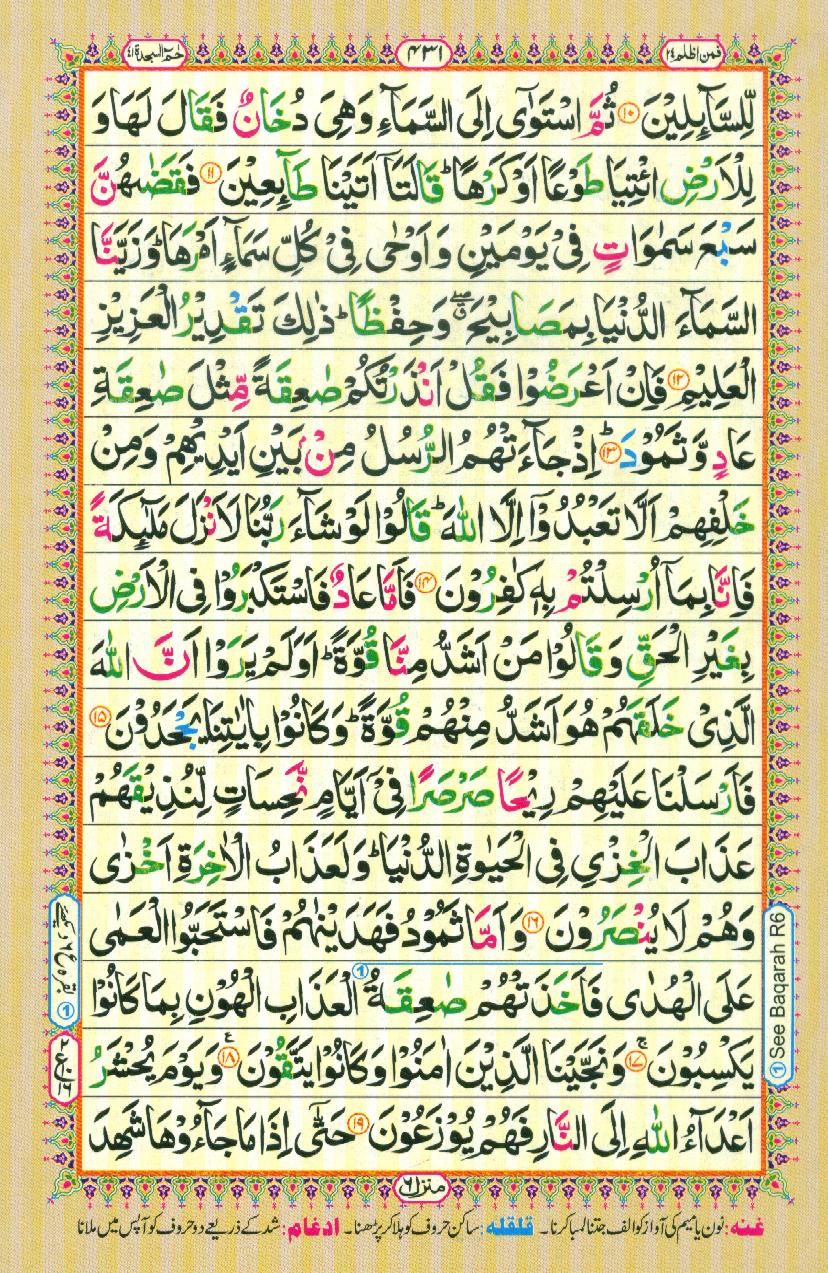 فمن اظلم ٢٤
٤٣١
حٰمٓ السجدة ٤١
لِّلسَّآىِٕلِیْنَ ۝١٠ ثُمَّ اسْتَوٰۤی اِلَی السَّمَآءِ وَهِیَ دُخَانٌ فَقَالَ لَهَا وَ
لِلْاَرْضِ ائْتِیَا طَوْعًا اَوْ كَرْهًا ؕ قَالَتَاۤ اَتَیْنَا طَآىِٕعِیْنَ ۝١١ فَقَضٰىهُنَّ
سَبْعَ سَمٰوَاتٍ فِیْ یَوْمَیْنِ وَاَوْحٰی فِیْ كُلِّ سَمَآءٍ اَمْرَهَا ؕ وَزَیَّنَّا
السَّمَآءَ الدُّنْیَا بِمَصَابِیْحَ ۖۗ وَحِفْظًا ؕ ذٰلِكَ تَقْدِیْرُ الْعَزِیْزِ
الْعَلِیْمِ ۝١٢ فَاِنْ اَعْرَضُوْا فَقُلْ اَنْذَرْتُكُمْ صٰعِقَةً مِّثْلَ صٰعِقَةِ
عَادٍ وَّثَمُوْدَ ۝١٣ؕ اِذْ جَآءَتْهُمُ الرُّسُلُ مِنْۢ بَیْنِ اَیْدِیْهِمْ وَمِنْ
خَلْفِهِمْ اَلَّا تَعْبُدُوْۤا اِلَّا اللّٰهَ ؕ قَالُوْا لَوْ شَآءَ رَبُّنَا لَاَنْزَلَ مَلٰٓىِٕكَةً
فَاِنَّا بِمَاۤ اُرْسِلْتُمْ بِهٖ كٰفِرُوْنَ ۝١٤ فَاَمَّا عَادٌ فَاسْتَكْبَرُوْا فِی الْاَرْضِ
بِغَیْرِ الْحَقِّ وَقَالُوْا مَنْ اَشَدُّ مِنَّا قُوَّةً ؕ اَوَلَمْ یَرَوْا اَنَّ اللّٰهَ
الَّذِیْ خَلَقَهُمْ هُوَ اَشَدُّ مِنْهُمْ قُوَّةً ؕ وَكَانُوْا بِاٰیٰتِنَا یَجْحَدُوْنَ ۝١٥
فَاَرْسَلْنَا عَلَیْهِمْ رِیْحًا صَرْصَرًا فِیْۤ اَیَّامٍ نَّحِسَاتٍ لِّنُذِیْقَهُمْ
عَذَابَ الْخِزْیِ فِی الْحَیٰوةِ الدُّنْیَا ؕ وَلَعَذَابُ الْاٰخِرَةِ اَخْزٰی
وَهُمْ لَا یُنْصَرُوْنَ ۝١٦ وَاَمَّا ثَمُوْدُ فَهَدَیْنٰهُمْ فَاسْتَحَبُّوا الْعَمٰی
عَلَی الْهُدٰی فَاَخَذَتْهُمْ صٰعِقَةُ ① الْعَذَابِ الْهُوْنِ بِمَا كَانُوْا
یَكْسِبُوْنَ ۝١٧ۚ وَنَجَّیْنَا الَّذِیْنَ اٰمَنُوْا وَكَانُوْا یَتَّقُوْنَ ۝١٨ۧ وَیَوْمَ یُحْشَرُ
اَعْدَآءُ اللّٰهِ اِلَی النَّارِ فَهُمْ یُوْزَعُوْنَ ۝١٩ حَتّٰۤی اِذَا مَا جَآءُوْهَا شَهِدَ
① See Baqarah R6
① بقرہ ع ٦ دیکھئے
منزل ٦
غنه: نون یا میم کی آواز کو الف جتنا لمبا کرنا۔ قلقله: ساکن حروف کو ہلا کر پڑھنا۔ ادغام: شد کے ذریعے دو حروف کو آپس میں ملانا